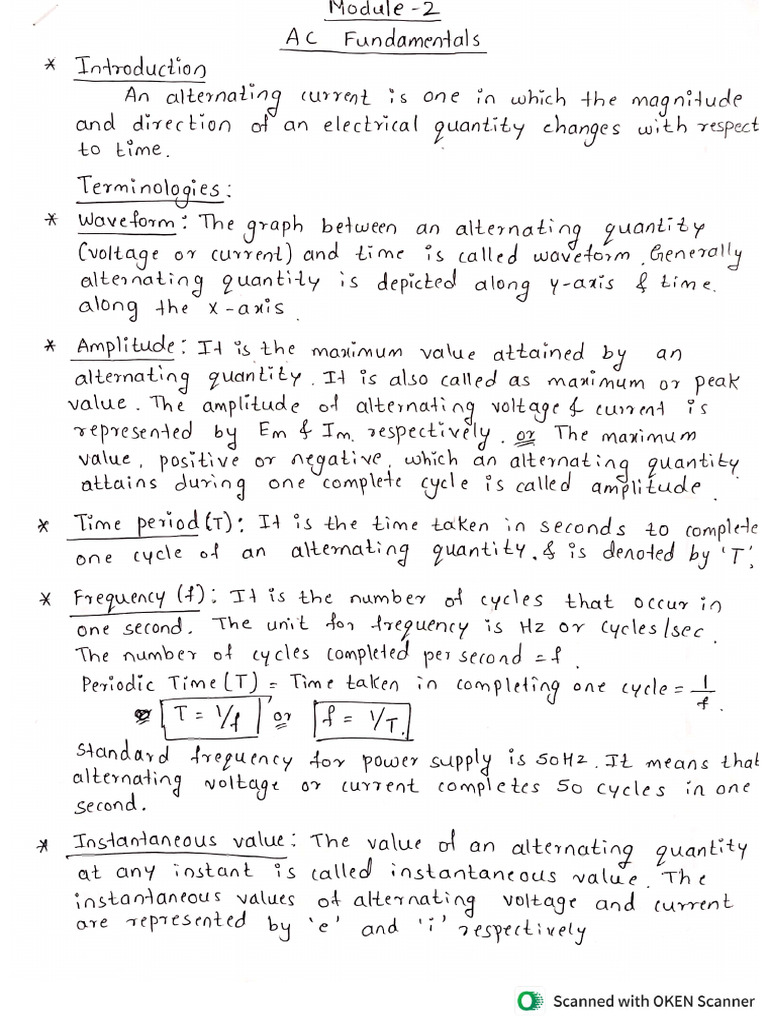 Module-2
AC Fundamentals
* Introduction
An alternating current is one in which the magnitude
and direction of an electrical quantity changes with respect
to time.
Terminologies:
* Waveform: The graph between an alternating quantity
(voltage or current) and time is called waveform. Generally
alternating quantity is depicted along y-axis & time.
along the x-axis.
* Amplitude: It is the maximum value attained by an
alternating quantity. It is also called as maximum or peak
value. The amplitude of alternating voltage & current is
represented by Em & Im. respectively. or The maximum
value, positive or negative, which an alternating quantity
attains during one complete cycle is called amplitude.
* Time period(T): It is the time taken in seconds to complete
one cycle of an alternating quantity. & is denoted by 'T'.
* Frequency (f): It is the number of cycles that occur in
one second. The unit for frequency is Hz or cycles/sec.
The number of cycles completed per second = f.
Periodic Time(T) = Time taken in completing one cycle = 1/f.
T = 1/f or f = 1/T.
Standard frequency for power supply is 50Hz. It means that
alternating voltage or current completes 50 cycles in one
second.
* Instantaneous value: The value of an alternating quantity
at any instant is called instantaneous value. The
instantaneous values of alternating voltage and current
are represented by 'e' and 'i' respectively
Scanned with OKEN Scanner